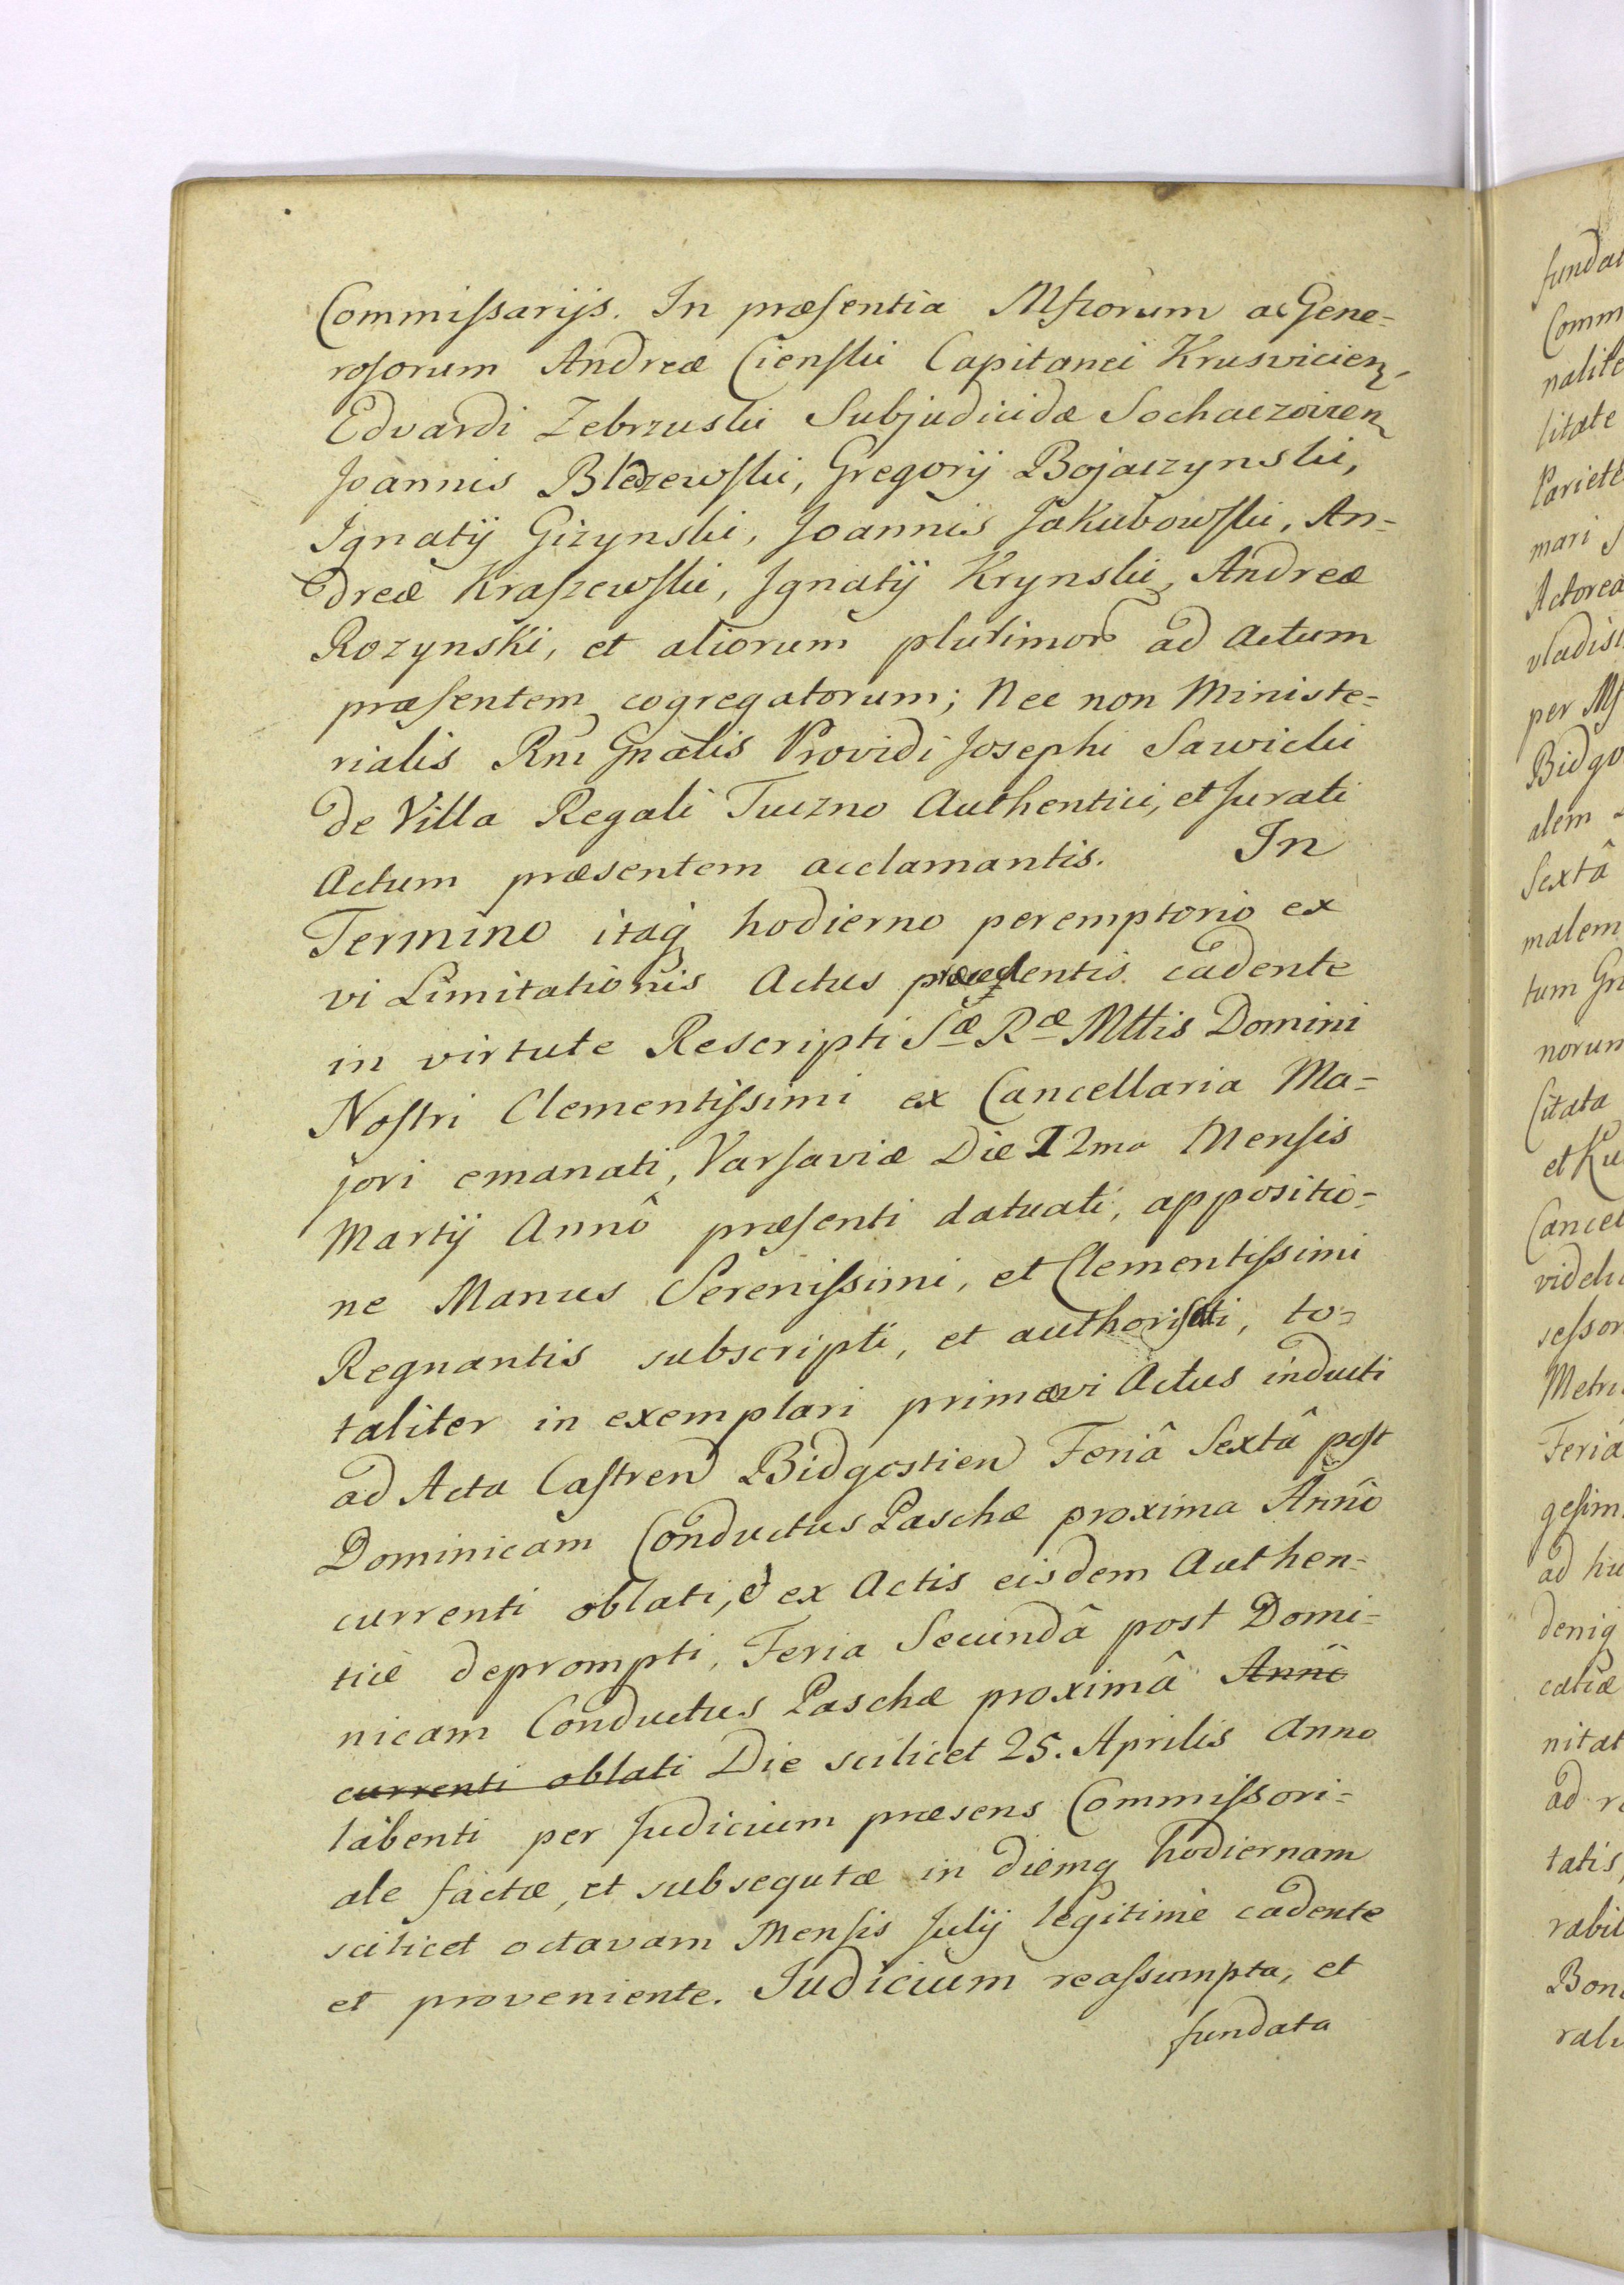 Commiſsarijs. In præſentia Mſtorum ac Gene=
roſorum Andreæ Cienſki Capitanei Krusvicien,
Edvardi Zebrzuski Subjudicidæ Sochaczovien
Joannis Bledzewſki, Gregorij Bojaczynski,
Ignatij Gizynski, Joannis Jakubowſki, An=
dreæ Kraſzewſki, Ignatij Krynski, Andreæ
Rozynski, et aliorum plurimor ad Actum
præſentem cogregatorum; Nec non Ministe=
rialis Rni Gnalis Providi Josephi Sawicki
de Villa Regali Tuczno Authentici, et Jurati
Actum præsentem acclamantis. In
Termino itaq hodierno peremptorio ex
vi Limitationis Actus præcedentis cadente
in virtute Rescripti Sæ Ræ Mttis Domini
Noſtri Clementiſsimi ex Cancellaria Ma=
jori emanati, Varſaviæ Die 12ma Menſis
Martij Annô præſenti datuati, appositio=
ne Manus Sereniſsimi, et Clementiſsimi
Regnantis subscripti, et authoriſati, to=
taliter in exemplari primævi Actus inducti
ad Acta Caſtren Bidgostien Feriâ Sextâ poſt
Dominicam Conductus Paschæ proxima Anno
currenti oblati, & ex Actis eisdem Authen=
ticè deprompti, Feria Secundâ post Domi=
nicam Conductus Paschæ proximâ Anno
currenti oblati Die scilicet 25. Aprilis Anno
labenti per Judicium præsens Commiſsori=
ale factæ, et subsequtæ in diemq hodiernam
scilicet octavam Menſis Julij legitimè cadente
et proveniente. Judicium reaſsumpta, et
fundata
fundat
Comm
nalite
litate
Pariete
mari
Actorea
vladisl
per Mſ
Bidgo
alem
Sextâ
malem
tum Gn
norum
Citata
et Ku
Cancel
videli
seſsor
Metri
Feria
geſim
ad hu
deniq
catiæ
nitat
ad re
tatis,
rabil
Bon